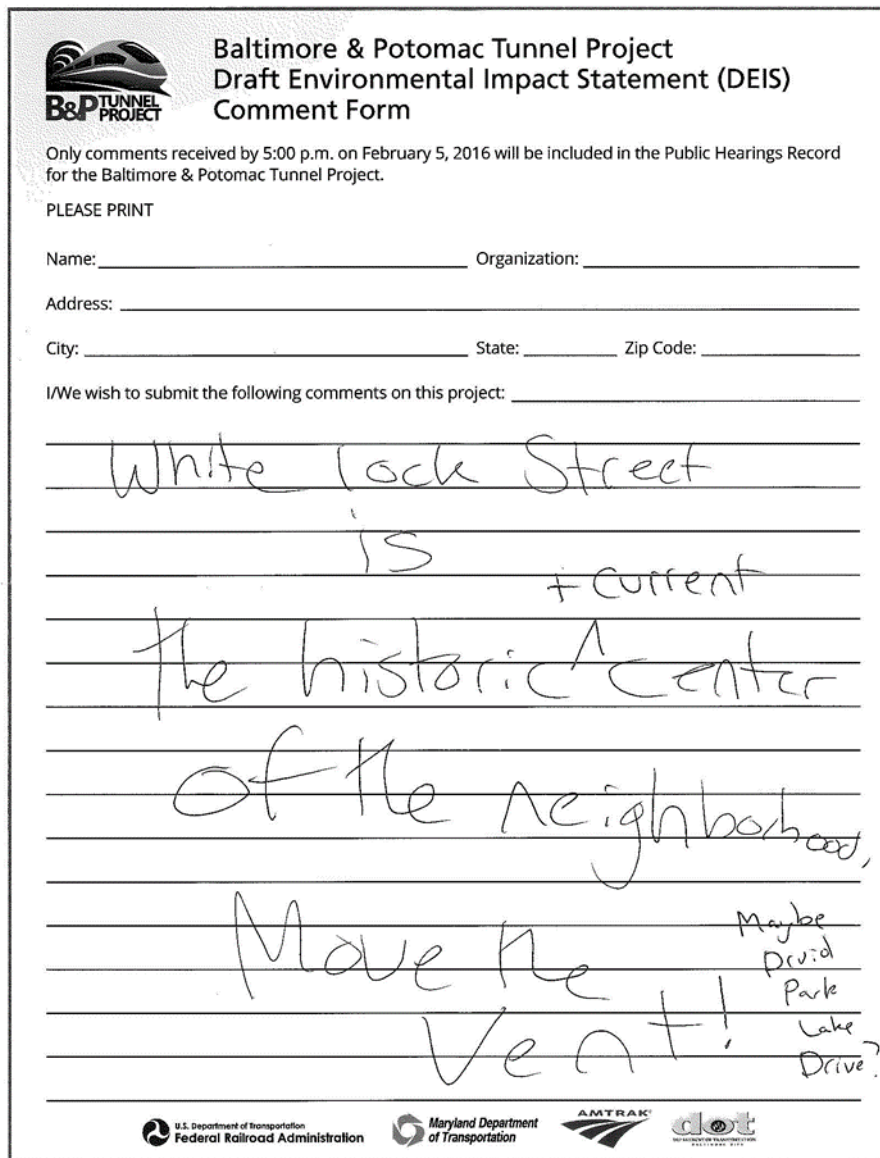 B&P TUNNEL PROJECT
Baltimore & Potomac Tunnel Project
Draft Environmental Impact Statement (DEIS)
Comment Form
Only comments received by 5:00 p.m. on February 5, 2016 will be included in the Public Hearings Record
for the Baltimore & Potomac Tunnel Project.
PLEASE PRINT
Name: Organization:
Address:
City: State: Zip Code:
I/We wish to submit the following comments on this project:
White lock Street
is
+ current
the historic ^ center
of the neighborhood,
Move the
Vent!
Maybe
Druid
Park
Lake
Drive?
U.S. Department of Transportation
Federal Railroad Administration
Maryland Department
of Transportation
AMTRAK
dot